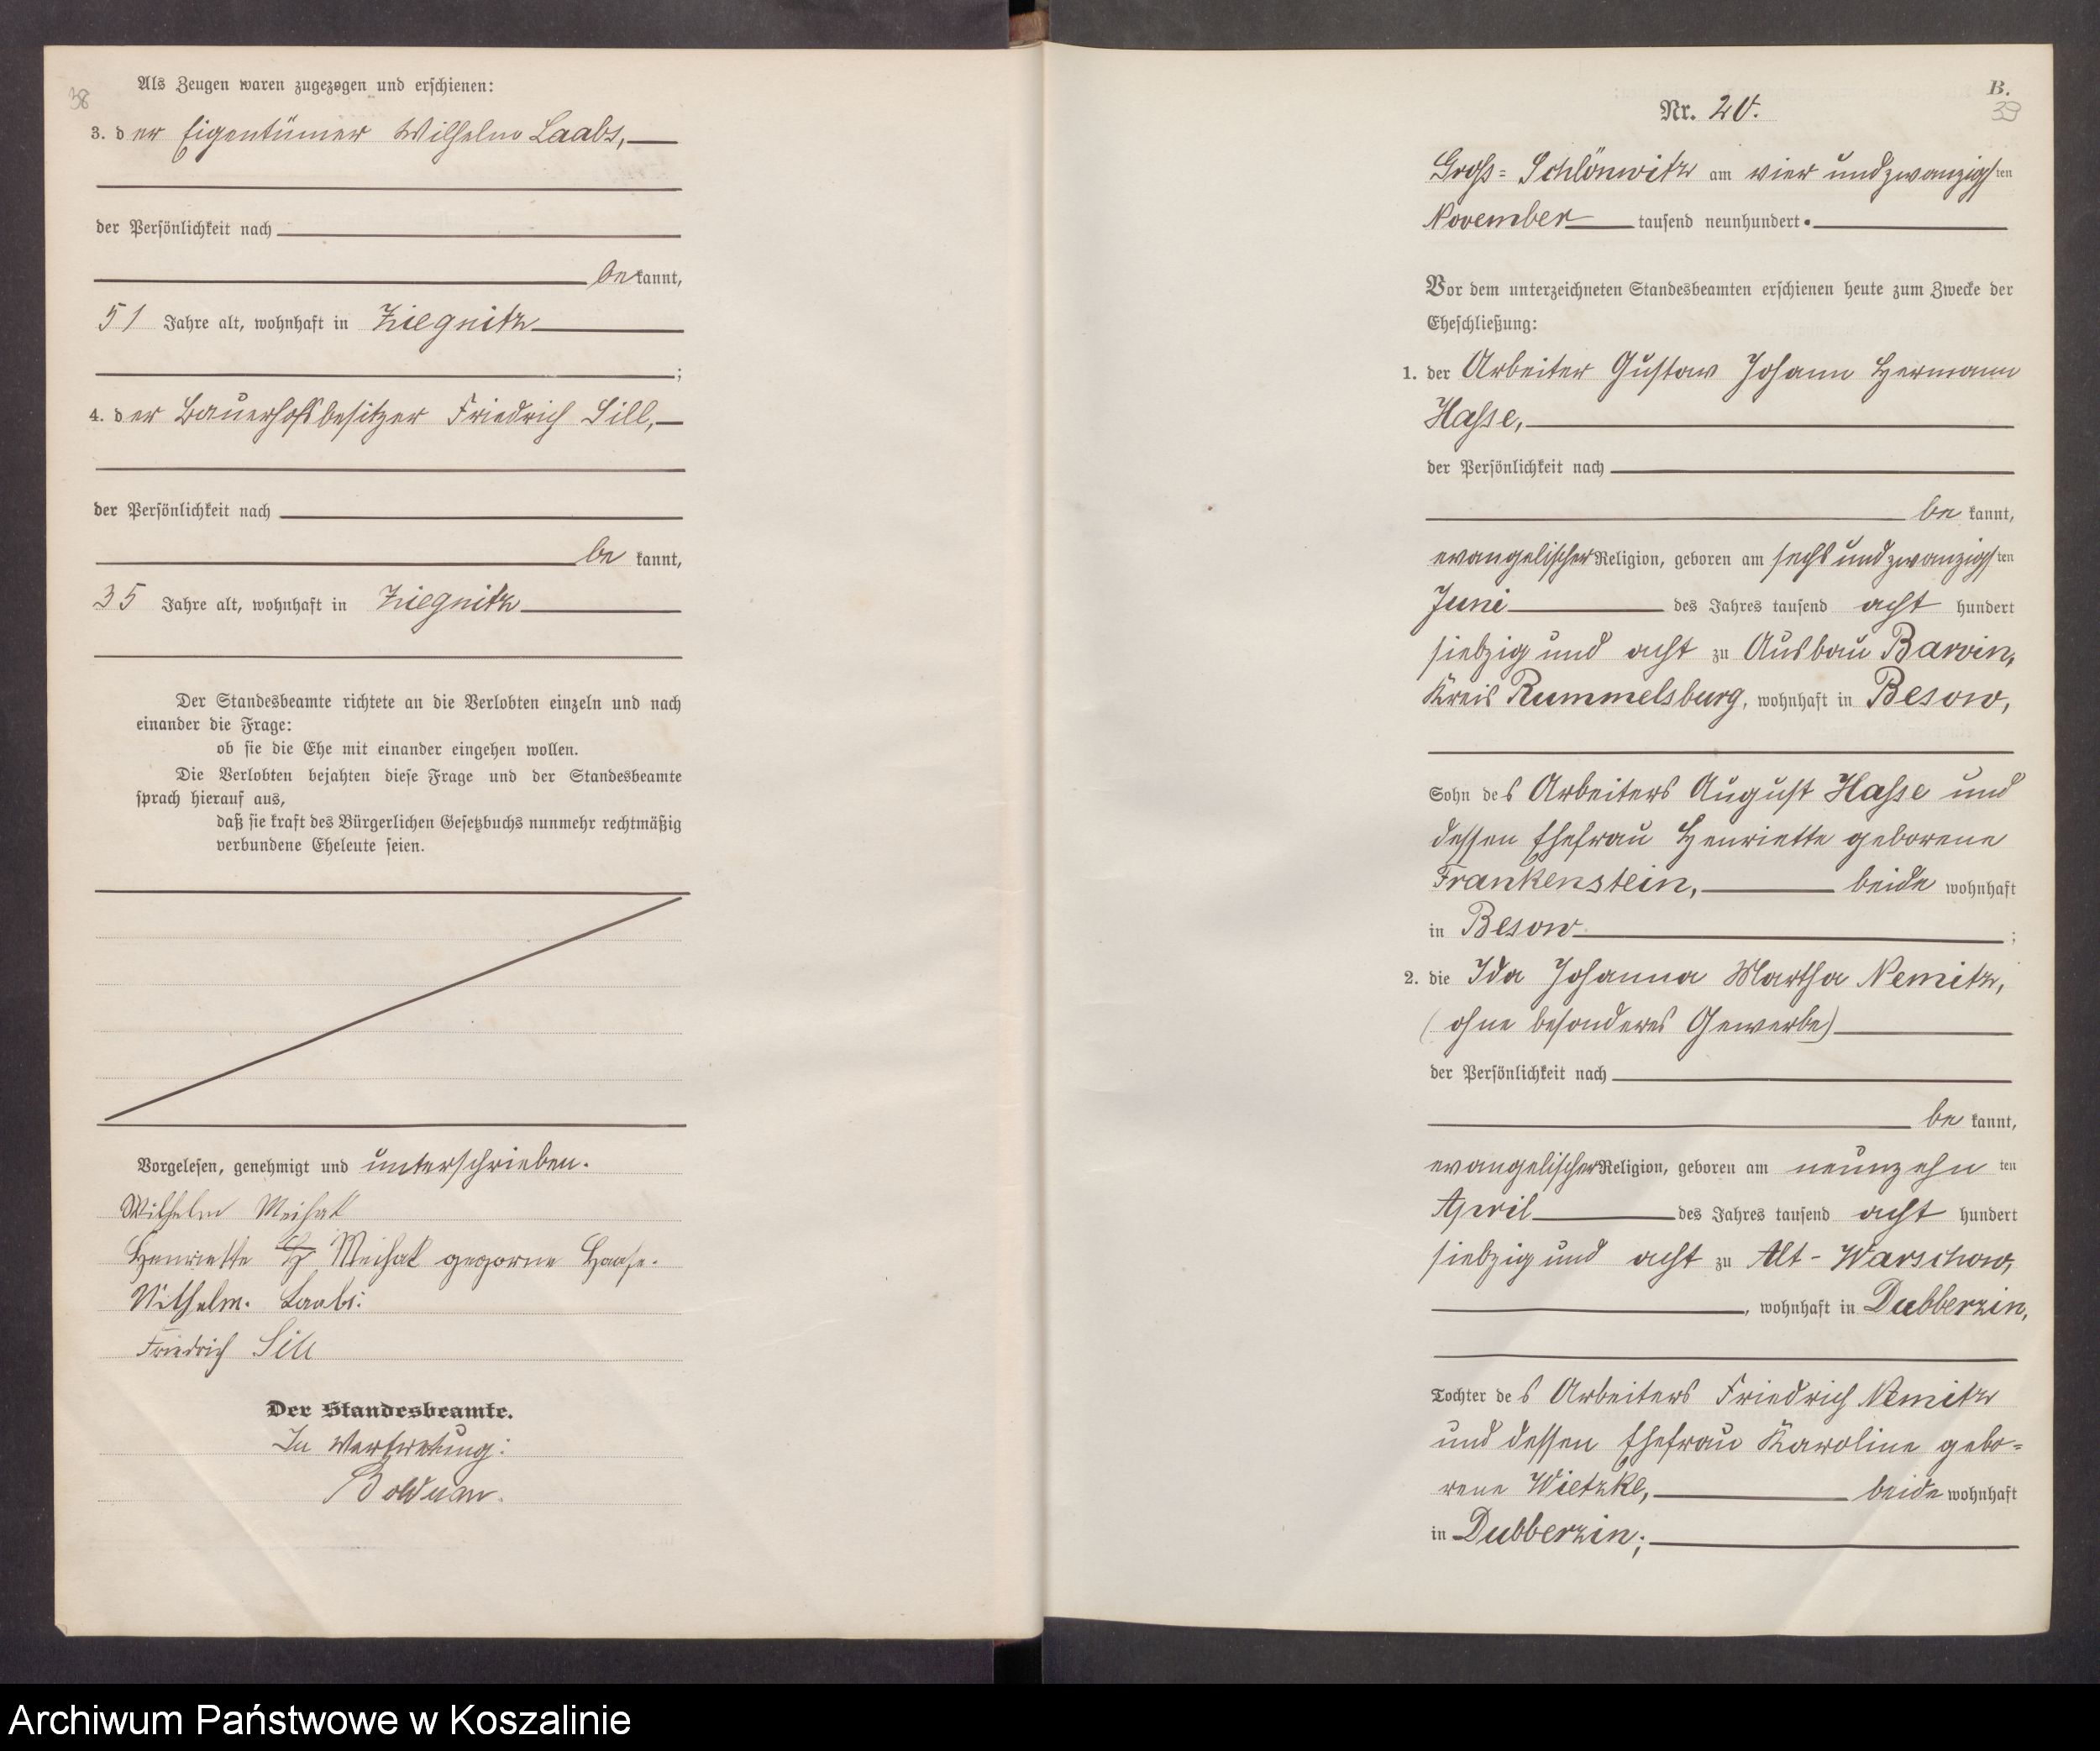 38
Als Zeugen waren zugezogen und erschienen:
3. der Eigentümer Wilhelm Laabs,
der Persönlichkeit nach
be kannt,
51 Jahre alt, wohnhaft in Ziegnitz
;
4. der Bauerhofsbesitzer Friedrich Sill,
der Persönlichkeit nach
be kannt,
35 Jahre alt, wohnhaft in Ziegnitz
Der Standesbeamte richtete an die Verlobten einzeln und nach
einander die Frage:
ob sie die Ehe mit einander eingehen wollen.
Die Verlobten bejahten diese Frage und der Standesbeamte
sprach hierauf aus,
daß sie kraft des Bürgerlichen Gesetzbuchs nunmehr rechtmäßig
verbundene Eheleute seien.
Vorgelesen, genehmigt und unterschrieben.
Wilhelm
Henriette
Wilhelm. Laabs.
Friedrich Sill
Der Standesbeamte.
In Vertretung:
Bolduan.
B.
39
Nr. 20.
Gross-Schlönwitz am vier und zwanzigsten
November tausend neunhundert.
Vor dem unterzeichneten Standesbeamten erschienen heute zum Zwecke der
Eheschließung:
1. der Arbeiter Gustav Johann Hermann
Hasse,
der Persönlichkeit nach
be kannt,
evangelischer Religion, geboren am sechs und zwanzigsten
Juni des Jahres tausend acht hundert
siebzig und acht zu Ausbau Barvin,
Kreis Rummelsburg, wohnhaft in Besow,
Sohn des Arbeiters August Hasse und
dessen Ehefrau Henriette geborene
Frankenstein, beide wohnhaft
in Besow ;
2. die Ida Johanna Martha Nemitz,
(ohne besonderes Gewerbe)
der Persönlichkeit nach
be kannt,
evangelischer Religion, geboren am neunzehn ten
April des Jahres tausend acht hundert
siebzig und acht zu Alt-Warschow,
, wohnhaft in Dubberzin,
Tochter des Arbeiters Friedrich Nemitz
und dessen Ehefrau Karoline gebo-
rene Wietzke, beide wohnhaft
in Dubberzin;
Archiwum Państwowe w Koszalinie